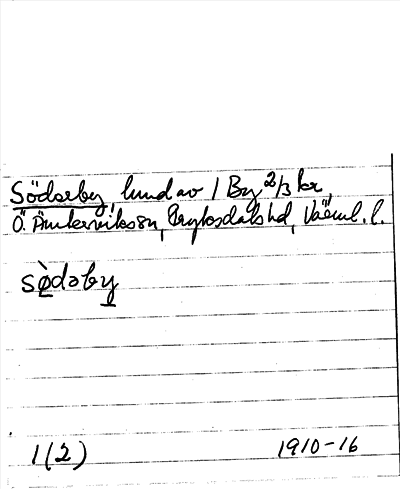 Söderby, lund av 1 By 2/3 kr,
Ö. Ämtervikssn, Fryksdalshd, Värml. l.
sø̀dəby
1(2) 1910-16